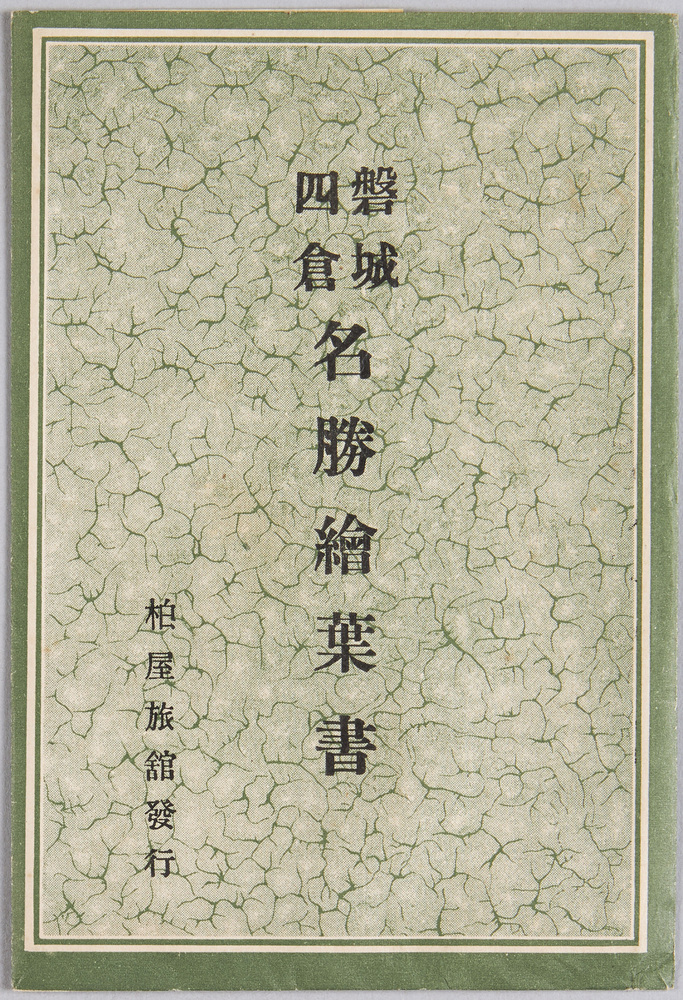 磐城
四倉
名勝繪葉書
柏屋旅舘發行